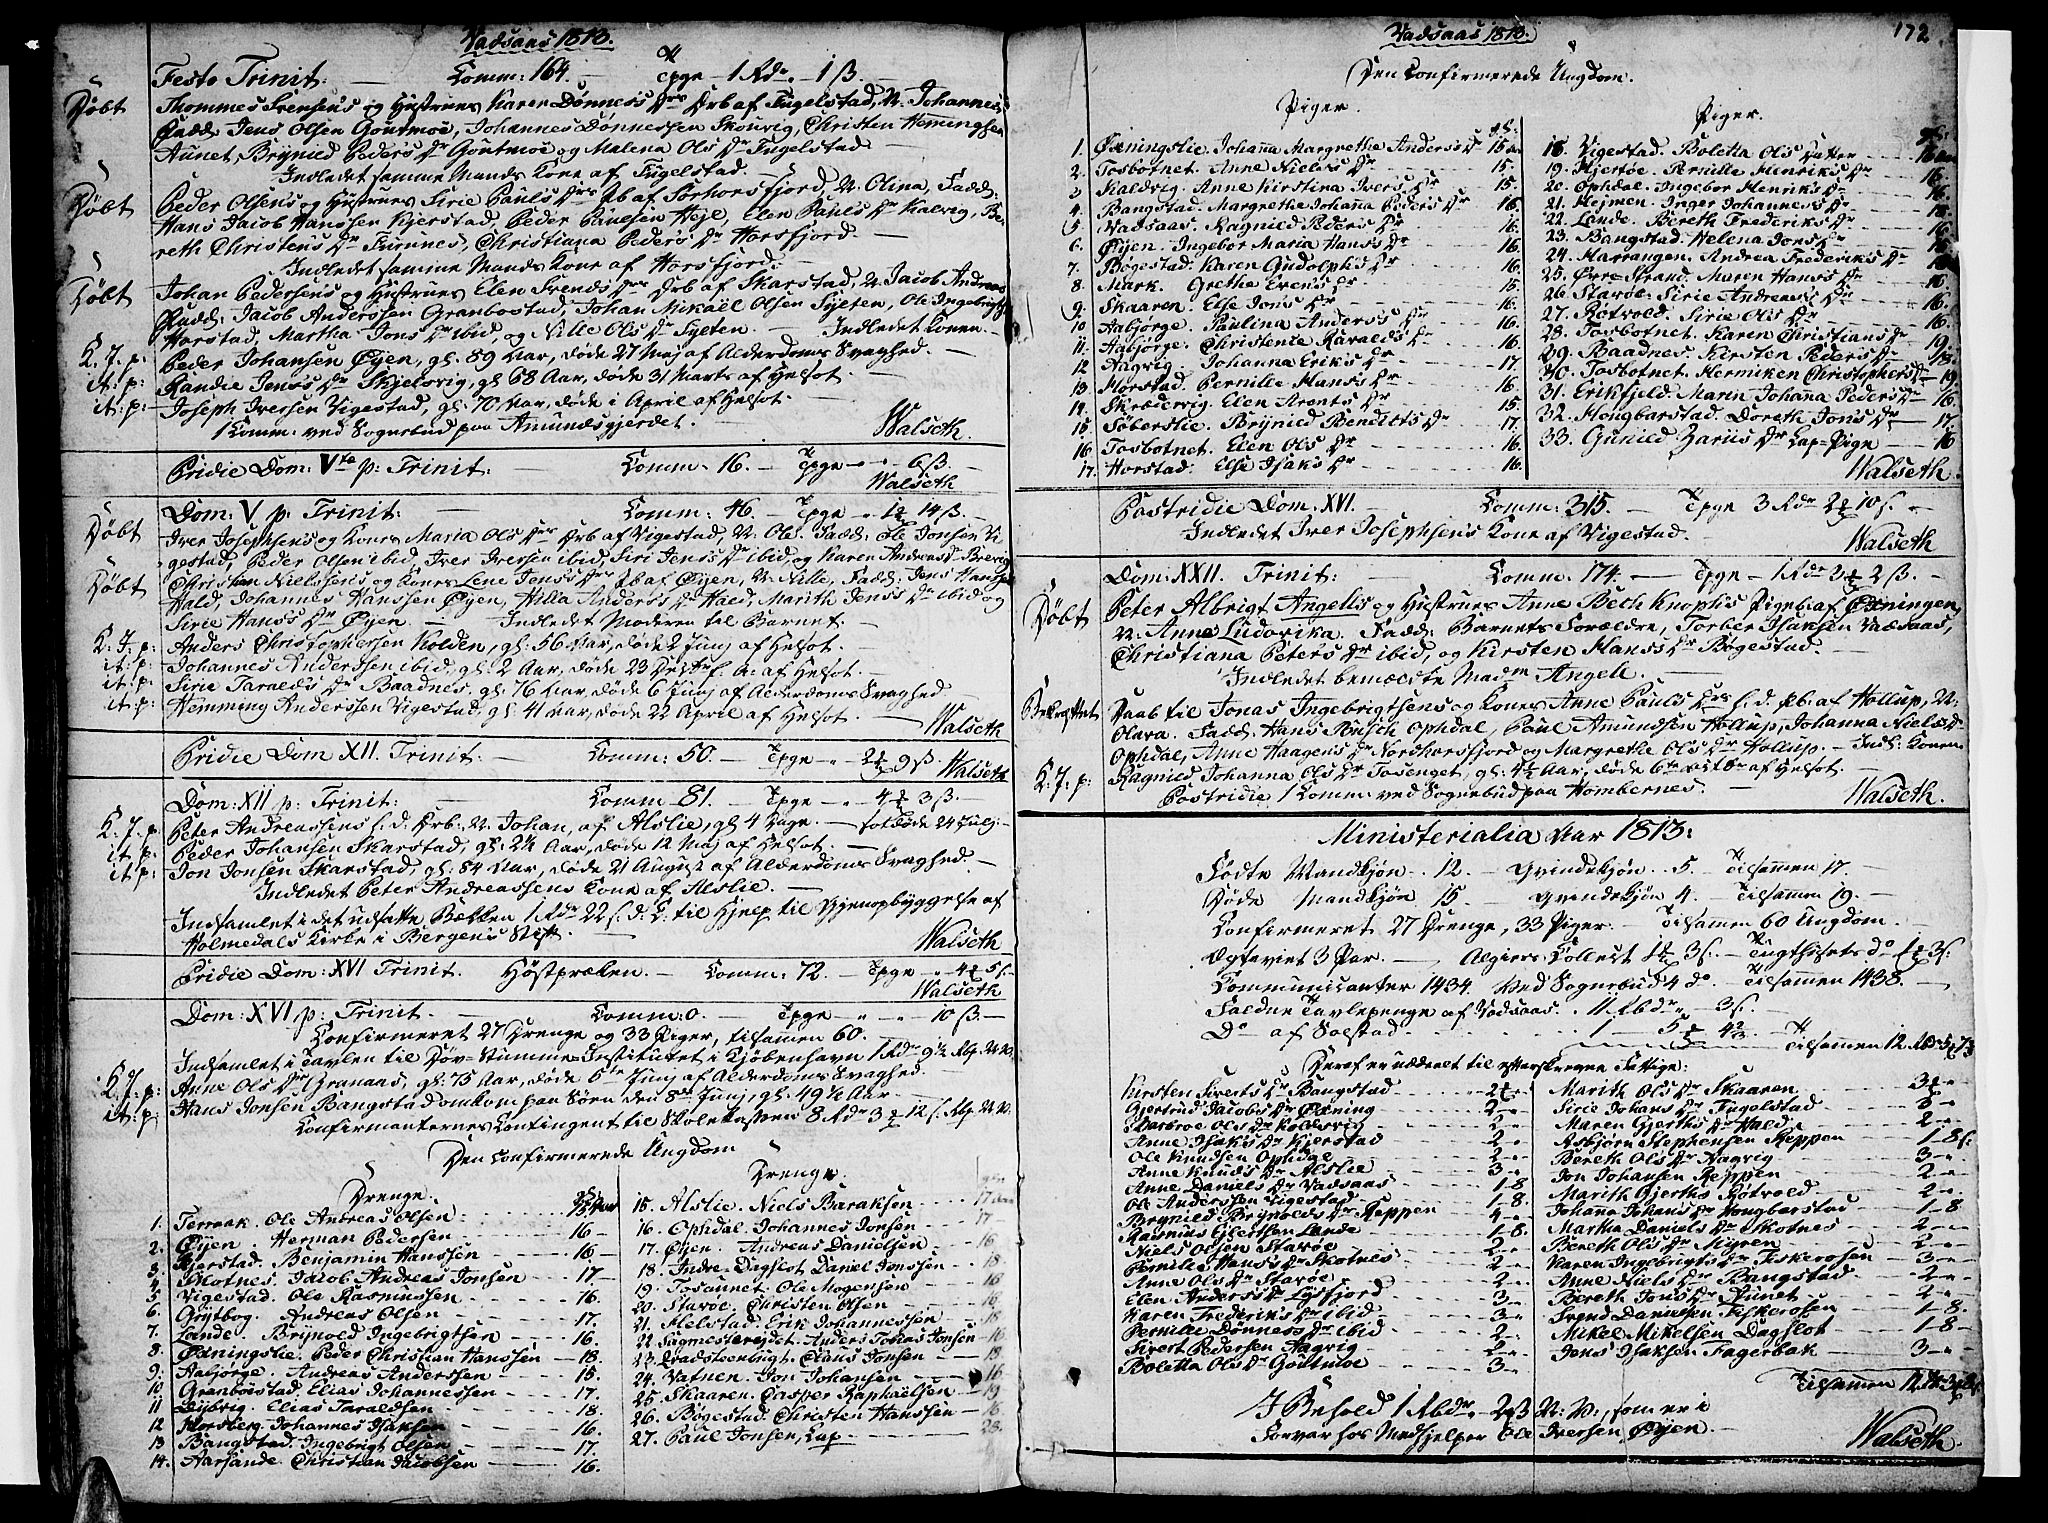 Vadsaas 1813.
Festo Trinit: — Comm: 164. — Tpge — 1 Rdr. — 1 ß. —
Døbt Thommes Svensens og Hustrues Karen Dønnes's Drs Drb af Fugelstad, N. Johannes.
Fadd: Jens Olsen Goutmoe, Johannes Dønnessen Skouvig, Christen Hemingsen
Aunet, Brynild Peders Dr Goutmoe og Malena Ols Dr Fugelstad —
Indledet samme Mands Kone af Fugelstad. —
Døbt Peder Olsens og Hustrues Sirie Pauls Drs Pb af Sørhorsfjord, N. Olina, Fadd:
Hans Jacob Hanssen Kjerstad, Peder Paulsen Heje, Elen Pauls Dr Kalvig, Be-
reth Christens Dr Furunes, Christiana Peders Dr Horsfjord. —
Indledet samme Mands Kone af Horsfjord: —
Døbt Johan Pedersens og Hustrues Elen Svends Drs Drb af Skarstad, N. Jacob Andreas
Fadd: Jacob Anderssen Granbostad, Johan Mikael Olsen Sylten, Ole Ingebrigts.
Horstad, Martha Jons Dr ibid, og Nille Ols Dr Sylten. — Indledet Konen. —
K. J. p: Peder Johansen Øyen, gl. 89 Aar, døde 27 Maj af Alderdoms Svaghed. —
it: p: Randie Jens's Dr Skjelsvig, gl 68 Aar, døde 31 Marts af Helsot. —
it: p: Joseph Iversen Vigestad, gl: 70 Aar, døde i April af Helsot. —
1 Comm: ved Sognebud paa Amundsgjerdet. — Walseth.
Pridie Dom: Vte p: Trinit: Comm: 16. — Tpge — " 6 ß. —
Walseth
Dom: V p: Trinit: — Comm: 46. — Tpge — " 1 14 ß. —
Døbt Iver Josephsens og Kones Maria Ols Drs Drb af Vigestad, N. Ole. Fadd: Ole Jonsen Vi-
gestad, Peder Olsen ibid, Iver Iversen ibid, Siri Jens's Dr ibid og Karen Andreas Dr Brevig
Døbt Christian Nielssens og Kones Lene Jens's Drs Pb af Øyen, N. Nille, Fadd: Jens Hanssen
Hald, Johannes Hanssen Øyen, Nilla Anders's Dr Hald, Marith Jens's Dr ibid og
Sirie Hans's Dr Øyen. — Indledet Moderen til Barnet. —
K: J. p: Anders Christophersen Kolden, gl: 56 Aar, døde 2 Junj af Helsot. —
it: p: Johannes Anderssen ibid, gl: 2 Aar, døde 23 f. A: af Helsot. —
it: p: Sirie Taralds Dr Baadnes, gl: 76 Aar, døde 6 Junj af Alderdoms Svaghed —
it: p: Hemming Anderssen Vigestad, gl: 41 Aar, døde 22 April af Helsot. —
Walseth
Pridie Dom XII. Trinit: Comm: 50. — Tpge — " 2 9 ß Walseth
Dom: XII p: Trinit: — Comm 81. — Tpge — " 4 3 ß. —
K. J. p: Peter Andreassens s. d. Drb: N: Johan, af Alslie, gl: 4 Dage. —
it: p: Peder Johansen Skarstad, gl: 2½ Aar, døde 12 Maj af Helsot. —
it: p: Jon Jonsen Skarstad, gl: 84 Aar, døde 21 August af Alderdoms Svaghed. —
Indledet Peter Andreassens Kone af Alslie. —
Indsamlet i det udsatte Bækken 1 Rdr 22 s. d. C: til Hjelp til Gjenopbyggelse af
Holmedals Kirke i Bergens Stift. — Walseth
Pridie Dom: XVI Trinit. Høstprøken. — Comm: 72. — Tpge — " 4 5 s. —
Walseth
Dom: XVI p: Trinit. — Comm: 0. — Tpge — " — " — 10 ß. —
Confirmeret 27 Drenge og 33 Piger, tilsamen 60. —
Indsamlet i Tavlen til Døv-Stumme-Institutet i Kjøbenhavn 1 Rdr 9½ Rbp. N. V.
K. J. p: Anne Ols Dr Granaas, gl: 75 Aar, døde 5te Junj af Alderdoms Svaghed. —
it: p: Hans Jonsen Bangstad omkom paa Søen den 8de Junj, gl: 49½ Aar. —
Confirmanternes Contingent til Skolekassen 8 Rdr 3 12 s. Rbp. N. V.
Den Confirmerede Ungdom
Drenge.
1. Terraak. Ole Andreas Olsen
2. Øyen. Herman Pedersen 16 —
3. Kjerstad. Benjamin Hanssen 16 —
4. Skotnes. Jacob Andreas Jonsen 17 —
5. Vigestad. Ole Rasmussen 16.
6. Grytbog. Andreas Olsen 17.
7. Lande. Brynold Ingebrigtsen 16.
8. Øxningslie. Peder Christian Hanssen 18.
9. Aabjørge. Andreas Anderssen 15.
10. Granbostad. Elias Johannessen 17.
11. Dybvig. Elias Taraldsen 18.
12. Horsberg. Johannes Isaksen 16.
13. Bangstad. Ingebrigt Olsen 17.
14. Aarsande. Christian Jacobsen 16.
Drenge.
15. Alslie. Niels Baraksen 17
16. Ophdal. Johannes Jonsen 17 —
17. Øyen. Andreas Danielsen 16
18. Indre-Dagslot. Daniel Jonssen 18
19. Tosaunet. Ole Mogensen 16
20. Starøe. Christen Olsen 16
21. Helstad. Erik Johannessen 18
22. Sagmesterejdet. Anders Tobias Jonsen 16
23. Qvadsteenbrigt. Claus Jonsen 18
24. Vatnen. Jon Johansen 16
25. Skaaren. Casper Raphaelsen 19
26. Bøgestad. Christen Hanssen 16
27. Paul Jonsen, Lap. 23.
Vadsaas 1813.
172
Den Confirmerede Ungdom.
Piger.
1. Øxningslie. Johanna Margrethe Anders's Dr 15 Aar
2. Tosbotnet. Anne Niels's Dr 15.
3. Kaldvig. Anne Kirstina Ivers's Dr 15.
4. Bangstad. Margrethe Johanna Peders Dr 16.
5. Vadsaas. Ragnild Peders Dr 16.
6. Øyen. Ingebor Maria Hans's Dr 16.
7. Bøgestad. Karen Gudolphs Dr 16.
8. Mark. Grethe Evens Dr 15.
9. Skaaren. Else Jons Dr 16.
10. Aabjørge. Paulina Anders's Dr 16.
11. Aabjørge. Christense Haralds Dr 16.
12. Aagvig. Johanna Eriks Dr 17.
13. Horstad. Pernille Hans's Dr 16.
14. Skrædervig. Elen Arents Dr 15.
15. Søberslie. Brynild Bendicts Dr 17.
16. Tosbotnet. Elen Ols Dr 16.
17. Horstad. Else Isaks Dr 16.
Piger.
18. Vigestad. Boletta Ols Datter 16 Aar
19. Kjertøe. Pernille Henriks Dr 16.
20. Ophdal. Ingebor Henriks Dr 16.
21. Hejmen. Inger Johannes's Dr 18.
22. Lande. Bereth Frederiks Dr 16.
23. Bangstad. Helena Jons Dr 16.
24. Harrangen. Andrea Frederiks Dr
25. Øvre Strand. Maren Hans's Dr 16.
26. Starøe. Sirie Andreas's Dr 16.
27. Røtvold. Sirie Ols Dr 16.
28. Tosbotnet. Karen Christians Dr 19.
29. Baadnes. Kirsten Peders Dr 18.
30. Tosbotnet. Hermiken Christophers Dr 19.
31. Eriksfjeld. Marin Johana Peders Dr 16.
32. Hongbarstad. Doreth Jons Dr 17.
33. Gunild Zarius Dr Lap-Pige — 16
Walseth
Postridie Dom: XVI. — Comm: 315. — Tpge 3 Rdr 2 10 s. —
Indledet Iver Josephsens Kone af Vigestad. — Walseth
Dom: XXII. Trinit: — Comm. 174. — Tpge — 1 Rdr 3 2 ß. —
Døbt Peter Albrigt Angells og Hustrues Anne Beth Knophs Pigeb. af Øxningen,
N. Anna Ludovika. Fadd: Barnets Forældre, Torber Isaksen Vadsaas,
Christiana Peters Dr ibid, og Kirsten Hans's Dr Bøgestad. —
Indledet bemældte Madm Angell. —
Bekræftet Daab til Jonas Ingebrigtsens og Kones Anne Pauls Drs s. d. Pb. af Hollup, N:
Olava. Fadd: Hans Busch Ophdal, Paul Amundsen Hollup, Johanna Niels Dr
Ophdal, Anne Haagens Dr Nordhorsfjord og Margrethe Ols Dr Hollup. — Indl: Konen
K: J. p: Ragnild Johanna Ols Dr Tosenget, gl: 4½ Aar, døde 6te Octbr af Helsot. —
Postridie 1 Comm: ved Sognebud paa Hombernes. — Walseth.
Ministerialia Aar 1813:
Fødte Mandkjøn . 12. — Qvindekjøn . 5. — Tilsamen 17. —
Døde Mandkjøn 15. — Qvindekjøn 4. — Tilsamen 19. —
Confirmeret 27 Drenge, 33 Piger. — Tilsamen 60 Ungdom. —
Copuleret 3 Par. — Algiers Collect 1 3 s. — Tugthusets do 1 3 s.
Communicanter 1434. Ved Sognebud 4 do — Tilsamen 1438. —
Faldne Tavlepenge af Vadsaas. 11 Rbdr — 3 s. —
Do — af Solstad 1 — 5 4⅔
Tilsamen 12 Rbdr
Deraf er uddeelt til efterskrevne Fattige:
Kirsten Siverts Dr Bangstad 2
Gjertrud Jacobs Dr Øxning 2 "
Marbroe Ols Dr Koldsvig 2 "
Anne Isaks Dr Kjerstad 2 "
Ole Knudsen Ophdge 2 "
Anne Knuds Dr Alslie 3 "
Anne Daniels Dr Vadsaas 1 8
Ole Anderssen Vigestad 1 8.
Brynild Brynolds Dr Reppen 4 "
Rasmus Gjertsen Lande 1 8.
Niels Olsen Starøe 2 "
Pernille Hans's Dr Skotnes 2 "
Anne Ols Dr Starøe 2 "
Elen Anders's Dr Lysfjord 3 "
Karen Frederiks Dr ibid 3 "
Pernille Dønnes's Dr ibid 2 "
Sivert Pedersen Aagvig 2 "
Boletta Ols Dr Goutmoe 3 "
Marith Ols Dr Skaaren 3
Sirie Johans Dr Fugelstad 3 "
Maren Gjerths Dr Hald 2 "
Asbjørn Stephensen Reppen 1 8 s.
Bereth Ols Dr Aagvig 3 "
Jon Johansen Reppen 2 "
Marith Gjerths Røtvold 2 "
Johana Johans Dr Hongbarstad 1 8
Martha Daniels Dr Skotnes 2 "
Bereth Ols Dr Myren 2 "
Karen Ingebrigts Dr Fiskerosen 3 "
Anne Niels Dr Bangstad 2 "
Bereth Jons Dr Aunet 2 "
Svend Danielsen Fiskerosen 1 8.
Mikel Mikelsen Dagslot 1 8 —
Jens Isaksen Fagerbak 3 "
Tilsamen 12
I Behold 1 Rbdr. N: V:, som er i
Forvar hos Medhjelper Ole Iversen Øyen. — Walseth.